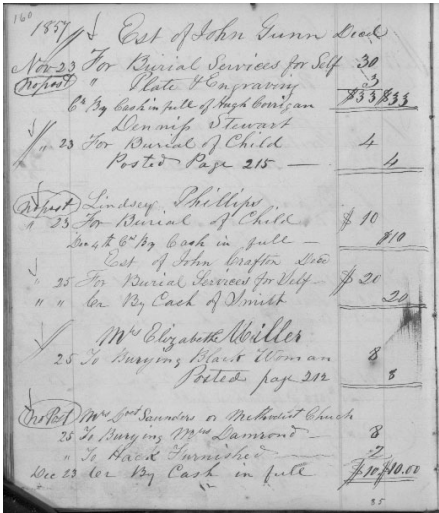 160
1857 Est of John Gunn Decd
Nov 23 For Burial Services for Self 30
no post " Plate & Engraving 3
Cr By Cash in full of Hugh Corrigan $33 $33
Dennis Stewart
" 23 For Burial of Child 4
Posted Page 215 — 4
no post Lindsey Phillips
" 23 For Burial of Child $10
Dec 4th Cr By Cash in full — $10
Est of John Crafton Decd
" 25 For Burial Services for Self — $20
" " Cr By Cash of Smith 20
Mrs Elizabeth Miller
25 To Burying Black Woman 8
Posted page 212 8
No Post Mrs Saunders or Methodist Church
25 To Burying Mrs Damrond — 8
" To Hack Furnished — 2
Dec 23 Cr By Cash in full $10 $10.00